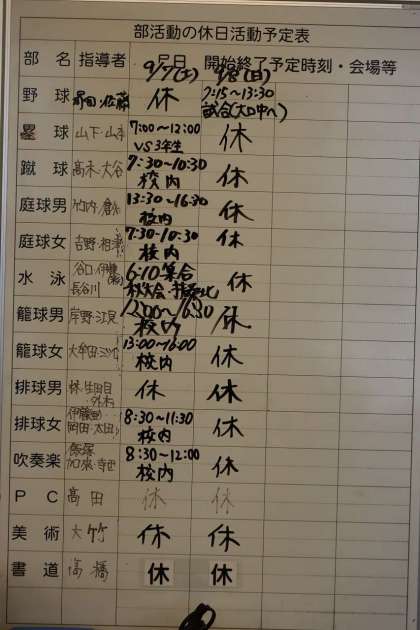 部活動の休日活動予定表
部 名 指導者 月日 開始終了予定時刻・会場等
9/7(土) 9/8(日)
野 球 佐藤 休 7:15~13:30
試合(大口中へ)
塁 球 山下・山本 7:00~12:00 休
VS 3年生
蹴 球 高木・大谷 7:30~10:30 休
校内
庭球男 竹内・倉 13:30~16:30 休
校内
庭球女 吉野・相澤 7:30~10:30 休
校内
水 泳 谷口・伊藤 6:10 集合 休
長谷川
籠球男 岸野・江見 12:00~16:30 休
校内
籠球女 大牟田・ 13:00~16:00 休
校内
排球男 林・生田目 休 休
排球女 伊藤 8:30~11:30 休
岡田・太田 校内
吹奏楽 飯塚 8:30~12:00 休
加来・寺西 校内
P C 高田 休 休
美 術 大竹 休 休
書 道 高橋 休 休